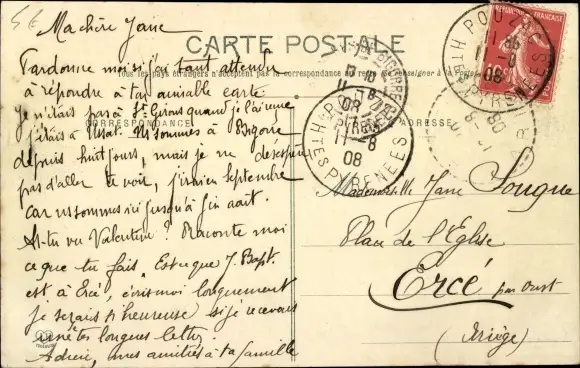 Ma chère Jane
CARTE POSTALE
Pardonne moi si j'ai tant attendu
Tous les pays étrangers n'acceptent pas la correspondance au recto (Se renseigner à la Poste)
à répondre à ton aimable carte
Je n'étais pas à St Girons quand je l'ai reçue
CORRESPONDANCE
ADRESSE
j'étais à Ussat. Ns sommes à Bigorre
depuis huit jours, mais je ne désespère
pas d'aller te voir, j'irai en septembre
car ns sommes ici jusqu'à fin août.
As-tu vu Valentine? Raconte moi
ce que tu fais. Est-ce que J. Bapt.
est à Ercé, écris moi longuement
je serais si heureuse si je recevais
une très longue lettre.
Adieu, mes amitiés à ta famille
Mademoiselle Jane Sougne
Place de l'Eglise
Ercé par Oust
(Ariège)
POUZAC
11-8
08
HTES PYRENEES
POUZAC
11-8
08
HTES PYRENEES
REPUBLIQUE FRANÇAISE
10